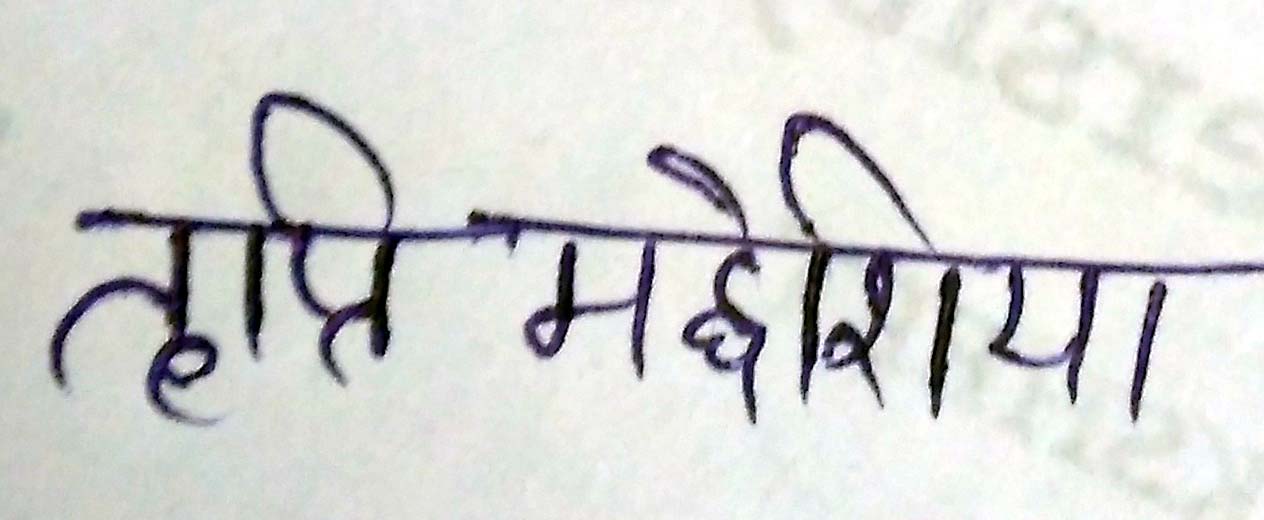 तृप्ति मद्देशिया